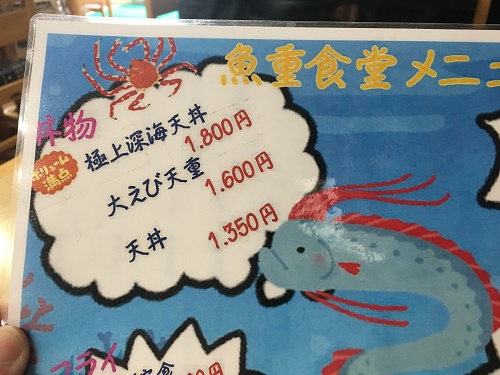 魚重食堂メニュ
丼物
ボリューム
満点
極上深海天丼
1.800円
大えび天重
1.600円
天丼
1.350円
フライ
定食